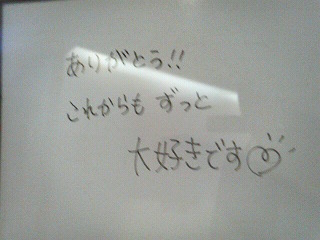 ありがとう!!
これからも ずっと
大好きです